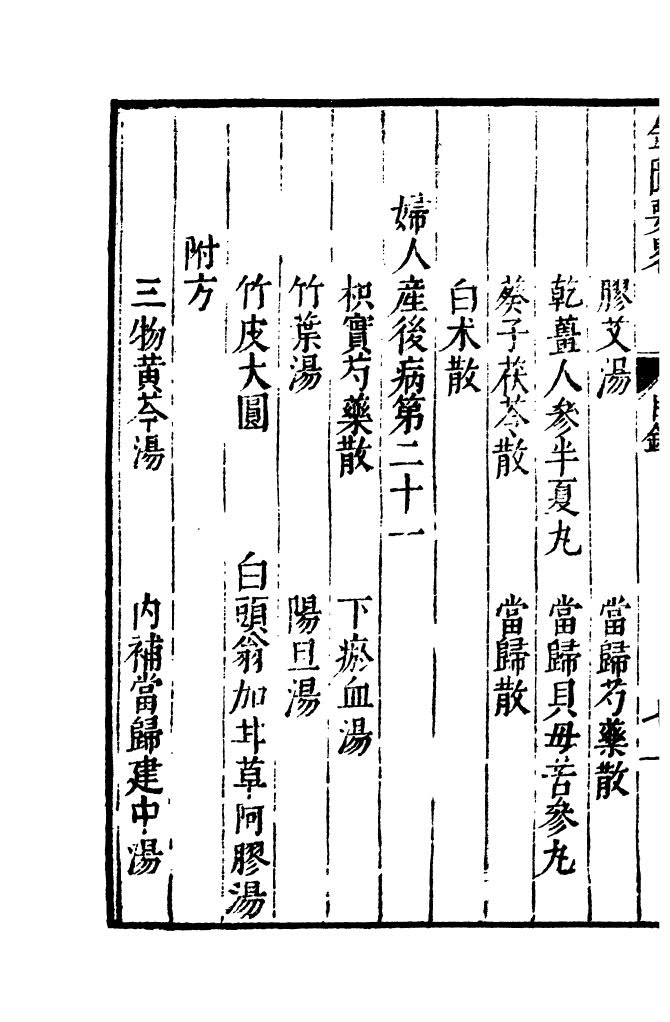 膠艾湯　當歸芍藥散
乾薑人參半夏丸　當歸貝母苦參丸
葵子茯苓散　當歸散
白术散
婦人産後病第二十一
枳實芍藥散　下瘀血湯
竹葉湯　陽旦湯
竹皮大圓　白頭翁加甘草阿膠湯
附方
三物黄芩湯　内補當歸建中湯